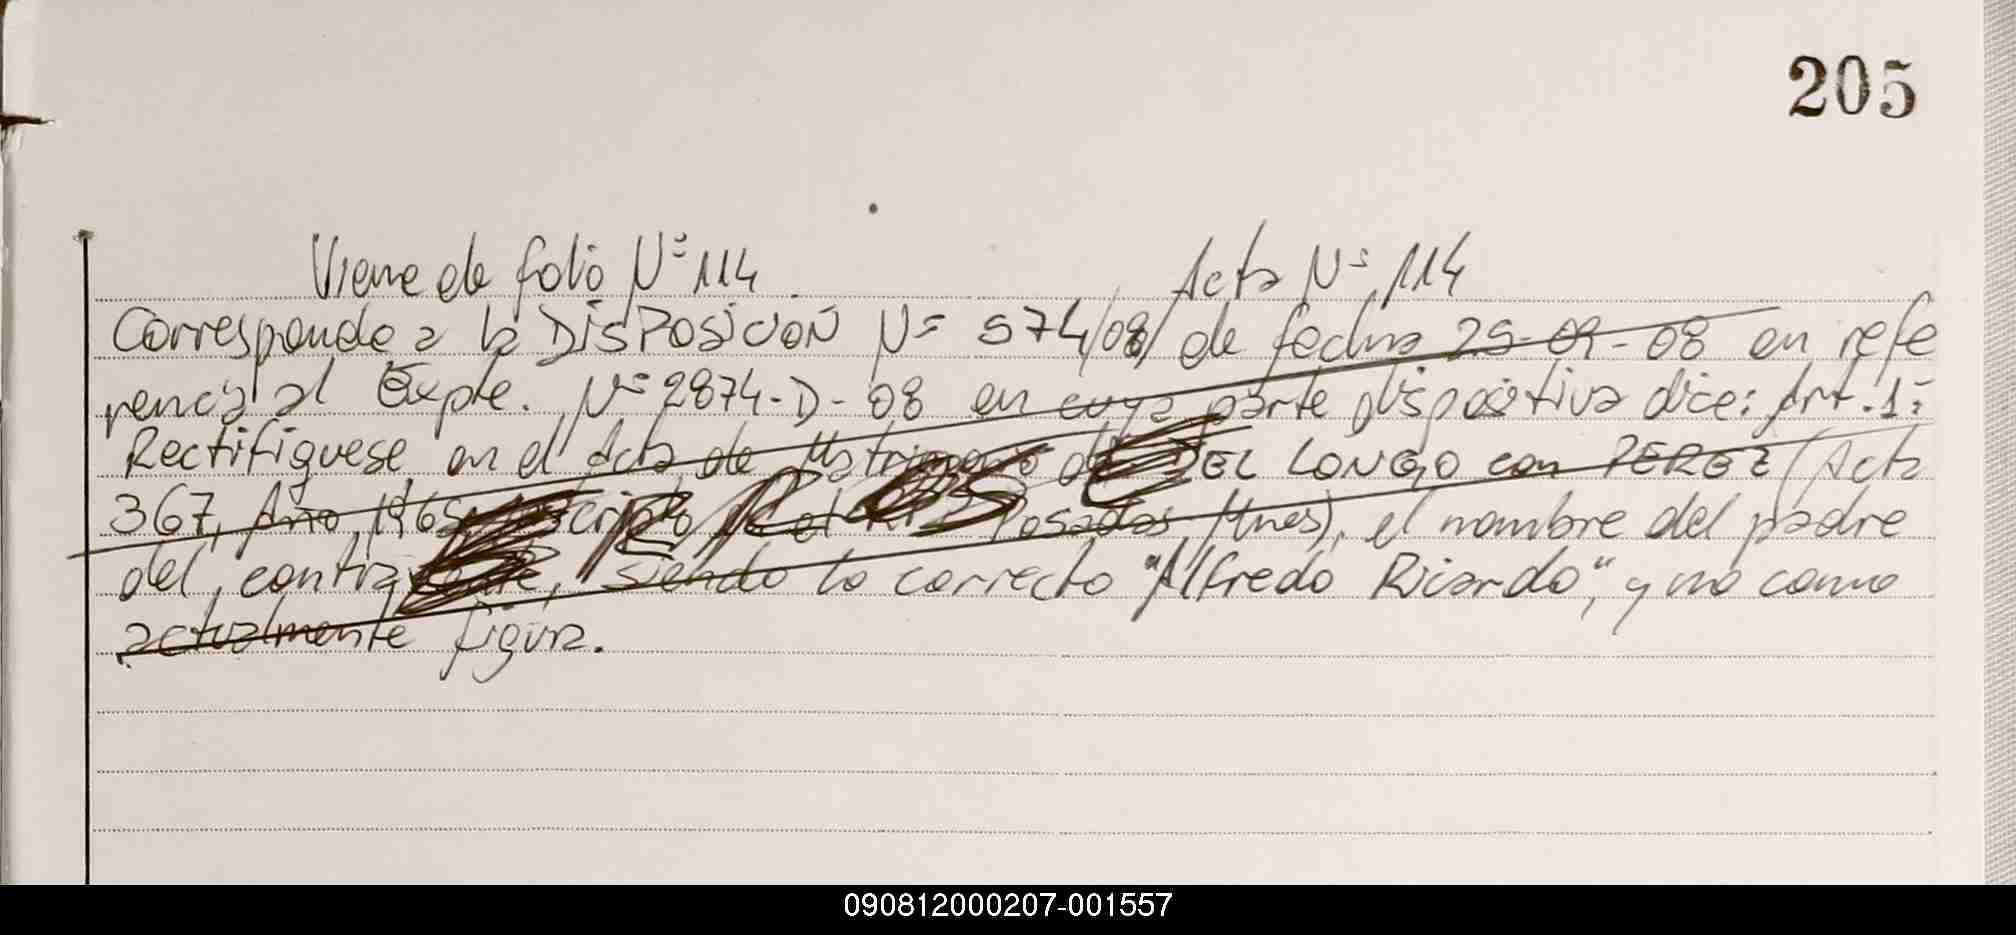 205
Viene de folio Nº 114. Acta Nº 114
Corresponde a la DISPOSICION Nº 574/08/ de fecha 25-09-08 en refe
rencia al Expte. Nº 2874-D-08 en cuya parte dispositiva dice: Art. 1º
Rectifiquese en el Acta de Matrimonio de DEL LONGO con PEREZ (Acta
367, Año 1965, inscripto en el Posadas, Mnes), el nombre del padre
del contrayente, siendo lo correcto "Alfredo Ricardo", y no como
actualmente figura.
ERROSE
090812000207-001557